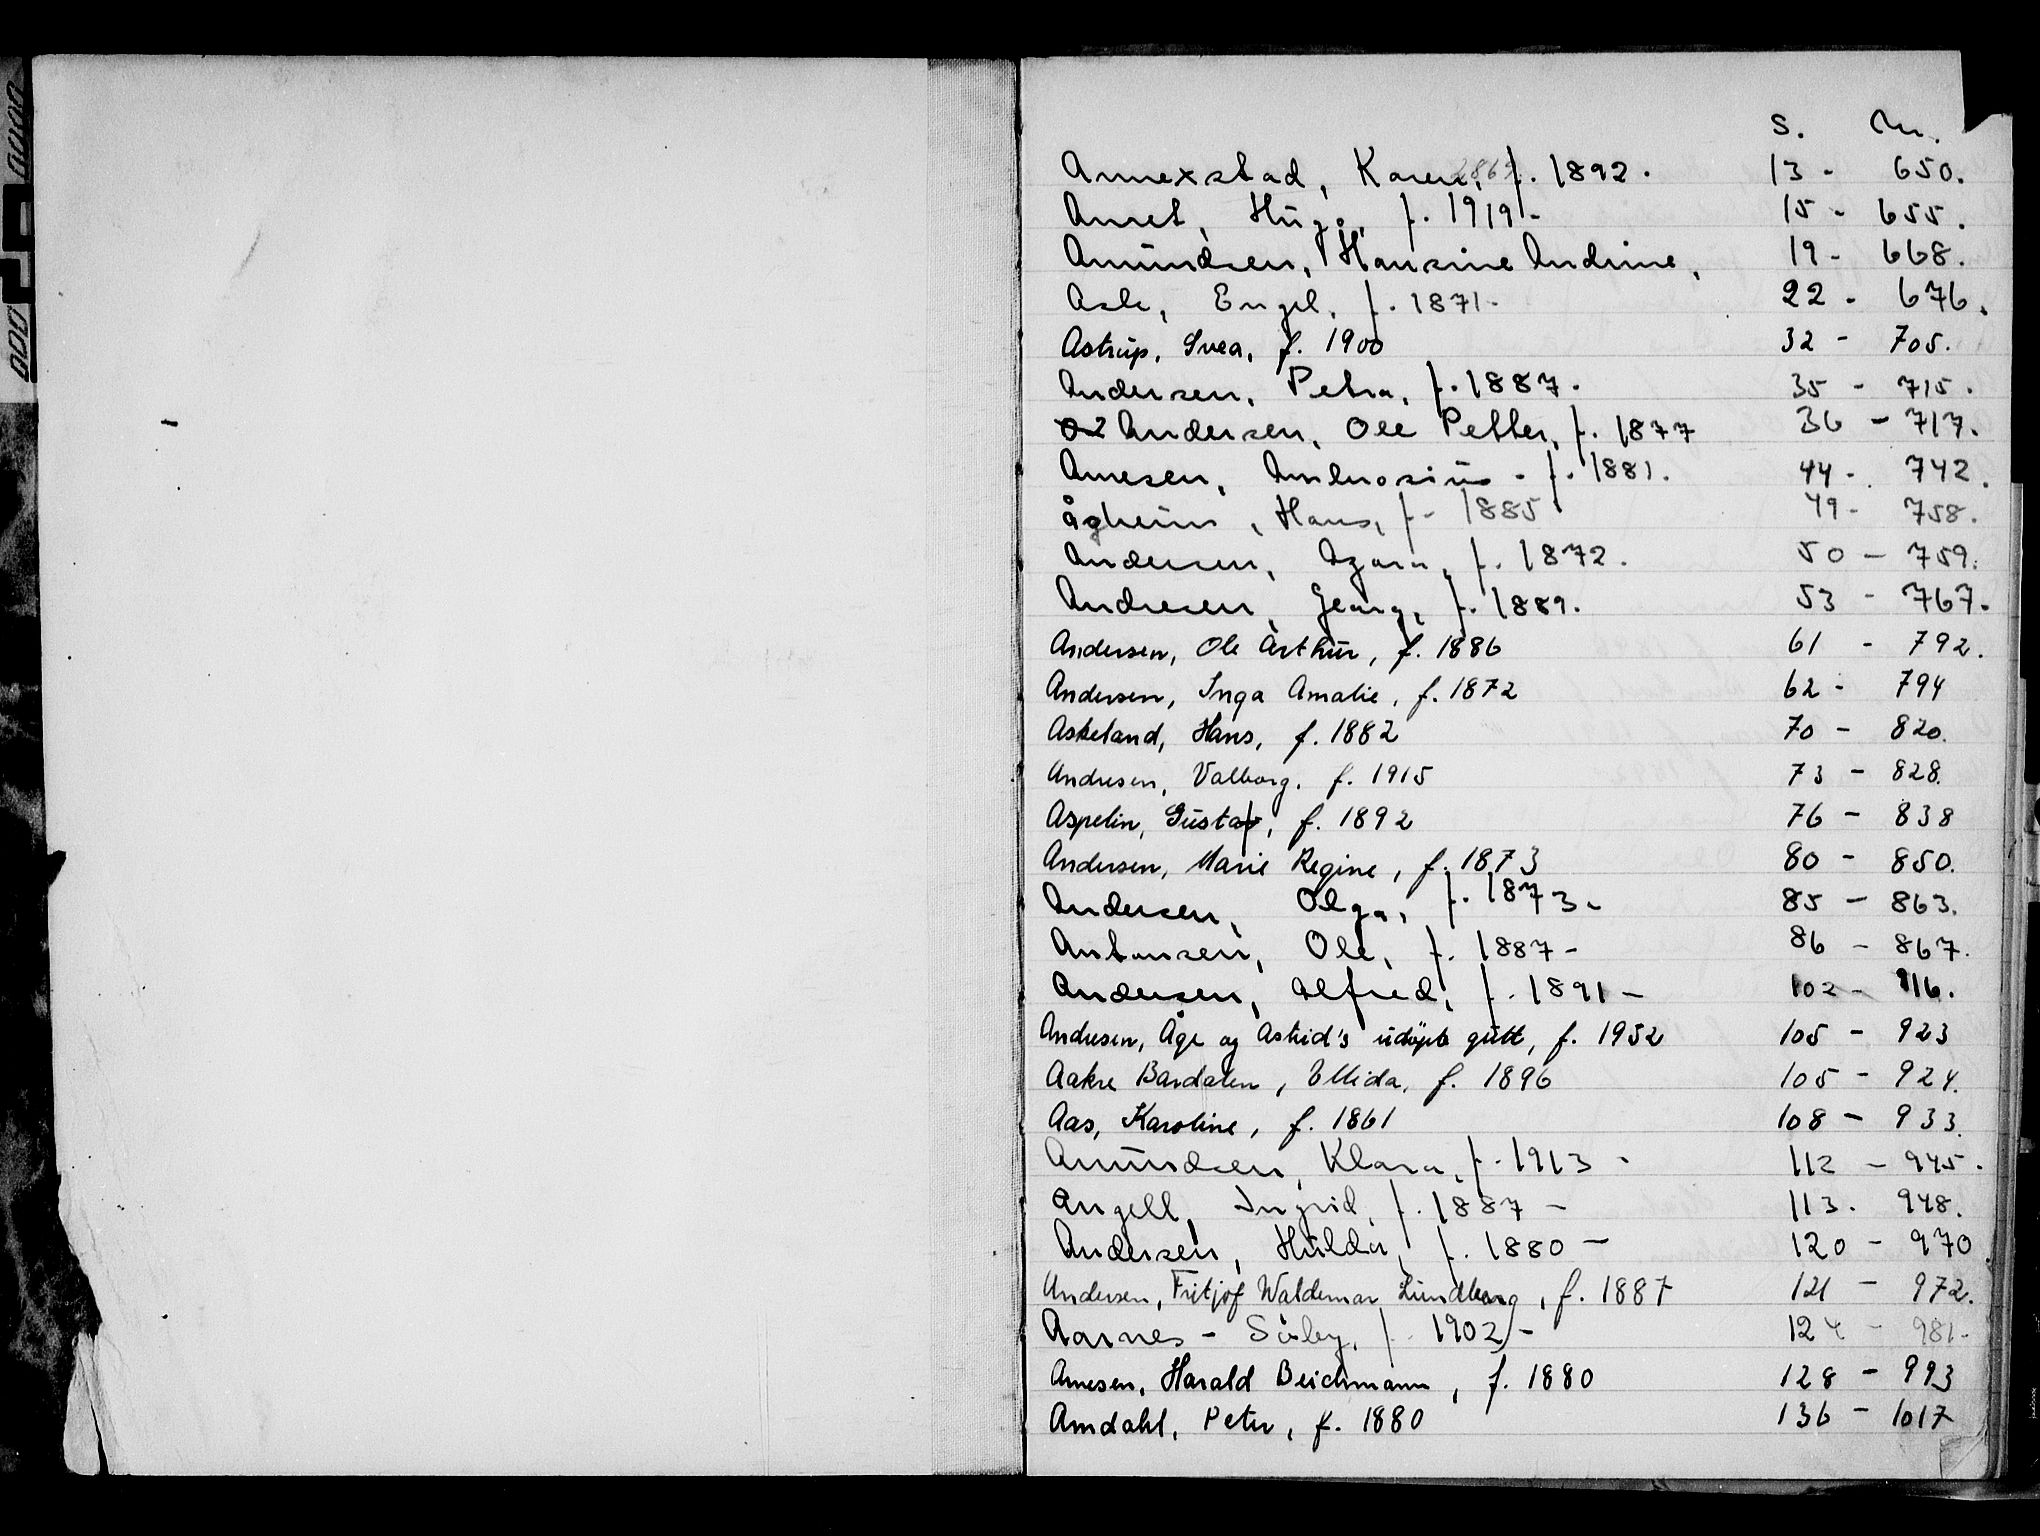 S. Nr.
Annexstad, Karen, f. 1892. 13 - 650.
Anset, Hugo, f. 1919 - 15 - 655.
Amundsen, Hansine Andrine, 19 - 668.
Ask, Engel, f. 1871 - 22 - 676.
Astrup, Svea, f. 1900 32 - 705.
Andersen, Petra, f. 1887. 35 - 715.
Andersen, Ole Petter, f. 1877 36 - 717.
Arnesen, Ambrosius - f. 1881. 44 - 742.
Ågheim, Hans, f - 1885 49 - 758.
Andersen, f. 1872. 50 - 759.
Andresen, Georg, f. 1889. 53 - 767.
Andersen, Ole Arthur, f. 1886 61 - 792.
Andersen, Inga Amalie, f. 1872 62 - 794
Askeland, Hans, f. 1882 70 - 820.
Andresen, Valborg, f. 1915 73 - 828.
Aspelin, Gustaf, f. 1892 76 - 838
Andersen, Marie Regine, f. 1873 80 - 850.
Andersen, Olga, f. 1873 - 85 - 863.
Antonsen, Ole, f. 1887 - 86 - 867.
Andersen, Alfred, f. 1891 - 102 - 916.
Andresen, Åge og Astrid's udöpte gutt, f. 1952 105 - 923
Aakre Bardalen, Ellida, f. 1896 105 - 924.
Aas, Karoline, f. 1861 108 - 933.
Amundsen, Klara, f. 1913 - 112 - 945.
Angell, Ingrid, f. 1887 - 113. 948.
Andersen, Hulda, f. 1880 - 120 - 970
Andersen, Fritjof Waldemar Lundberg, f. 1887 121 - 972.
Aarnes - Sörby, f. 1902 - 124 - 981 -
Arnesen, Harald Beichmann, f. 1880 128 - 993
Amdahl, Peter, f. 1880 136 - 1017